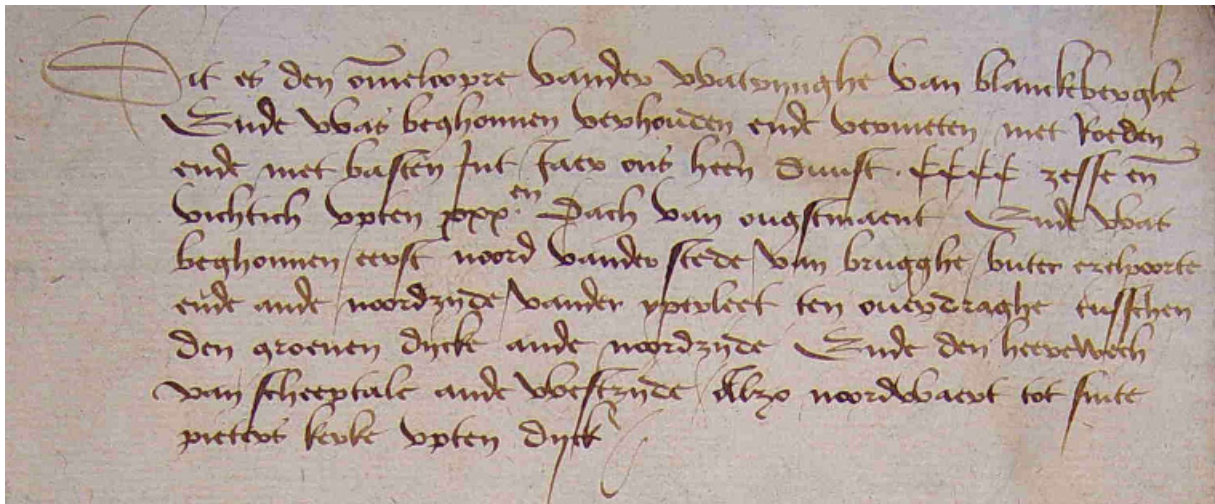 Dit es den om̄eloopre vander Watrijnghe van blanckeberghe
Ende was beghonnen verhouden ende vermeten met Roeden
ende met basten Int Jaer ons heeren duust . cccc zesse en̄
vichtich upten xxx.en Dach van ougstmaent Ende was
beghonnen eerst noord vander stede van brugghe buter ezelpoorte
ende ande noordzijde vander yperleet ten overdraghe tusschen
den groenen dijcke ande noordzijde Ende den heerewech
van scheeptale ande westzijde Alzo noordwaert tot sinte
pieters kerke upten dijck